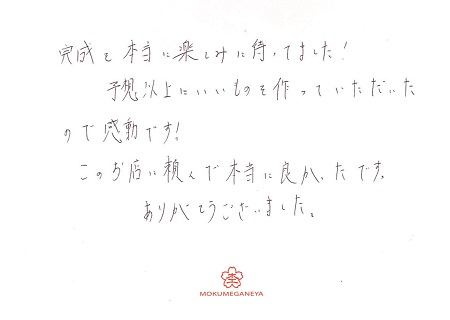 完成を本当に楽しみに待ってました!
予想以上にいいものを作っていただいた
ので感動です!
このお店に頼んで本当に良かったです。
ありがとうございました。
MOKUMEGANEYA